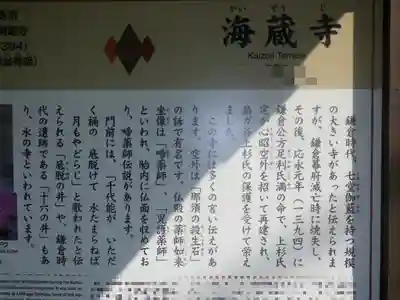 かいぞうじ
海蔵寺
Kaizoji Temple
鎌倉時代、七堂伽藍を持つ規模
の大きい寺があったと伝えられま
すが、鎌倉幕府滅亡時に焼失し、
その後、応永元年（一三九四）に
鎌倉公方足利氏満の命で、上杉氏
定が心昭空外を招いて再建され、
扇ガ谷上杉氏の保護を受けて栄え
ました。
この寺には多くの言い伝えがあ
ります。空外は「那須の殺生石」
の話で有名です。仏殿の薬師如来
坐像は「啼薬師」、「児護薬師」
といわれ、胎内に仏面を収めてお
り、啼薬師伝説があります。
門前には、「千代能が いただ
く桶の 底脱けて 水たまらねば
月もやどらじ」と歌われたと伝
えられる「底脱の井」や、鎌倉時
代の遺跡である「十六の井」もあ
り、水の寺といわれています。